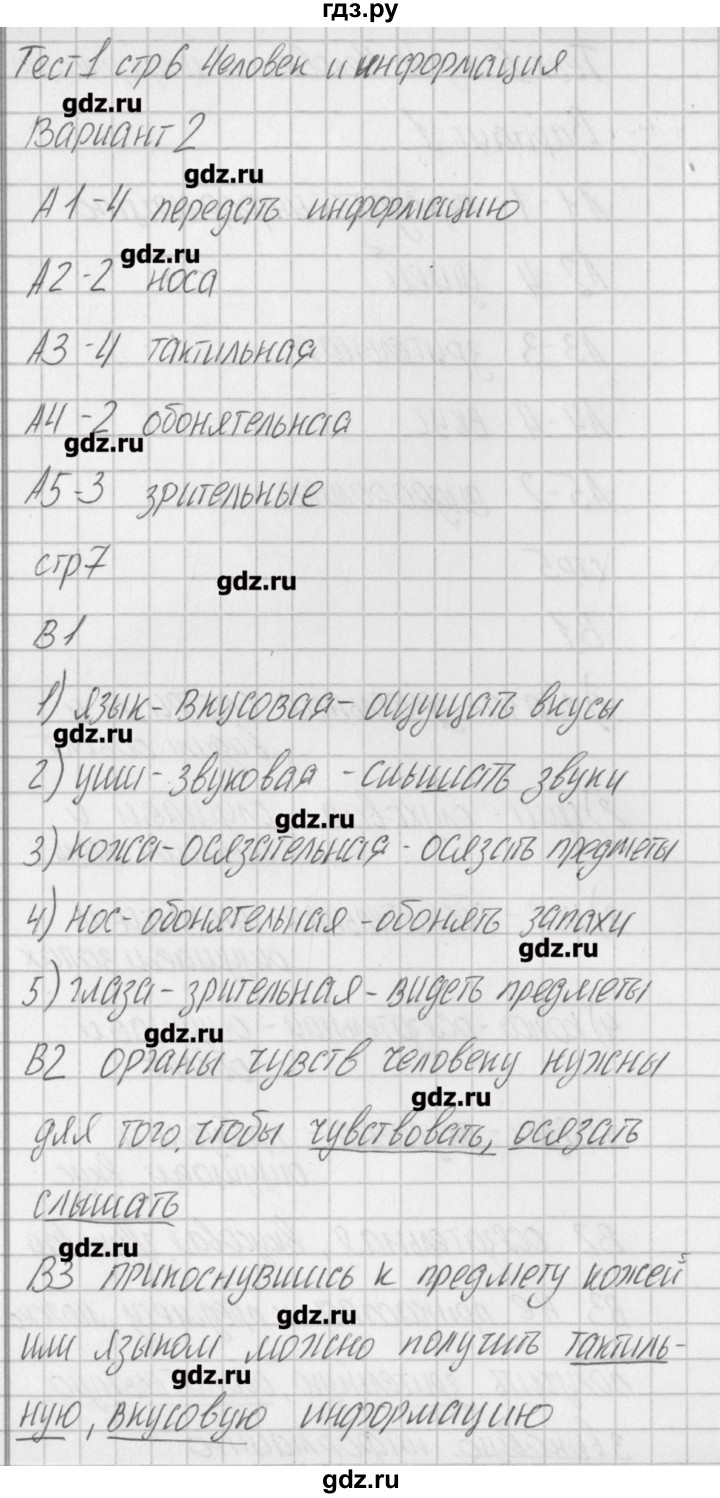 гдз.ру
Тест 1 стр 6 Человек и информация
gdz.ru
Вариант 2
gdz.ru
А1-4 передать информацию
gdz.ru
А2-2 носа
А3-4 тактильная
А4-2 обонятельная
gdz.ru
А5-3 зрительные
стр 7
gdz.ru
В1
1) язык - вкусовая - ощущать вкусы
gdz.ru
2) уши - звуковая - слышать звуки
gdz.ru
3) кожа - осязательная - осязать предметы
4) нос - обонятельная - обонять запахи
gdz.ru
5) глаза - зрительная - видеть предметы
gdz.ru
В2 органы чувств человеку нужны
gdz.ru
для того, чтобы чувствовать, осязать
слышать
gdz.ru
В3 прикоснувшись к предмету кожей
gdz.ru
или языком можно получить тактиль-
gdz.ru
ную, вкусовую информацию
gdz.ru